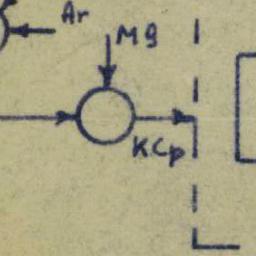 Ar
Mg
KCp